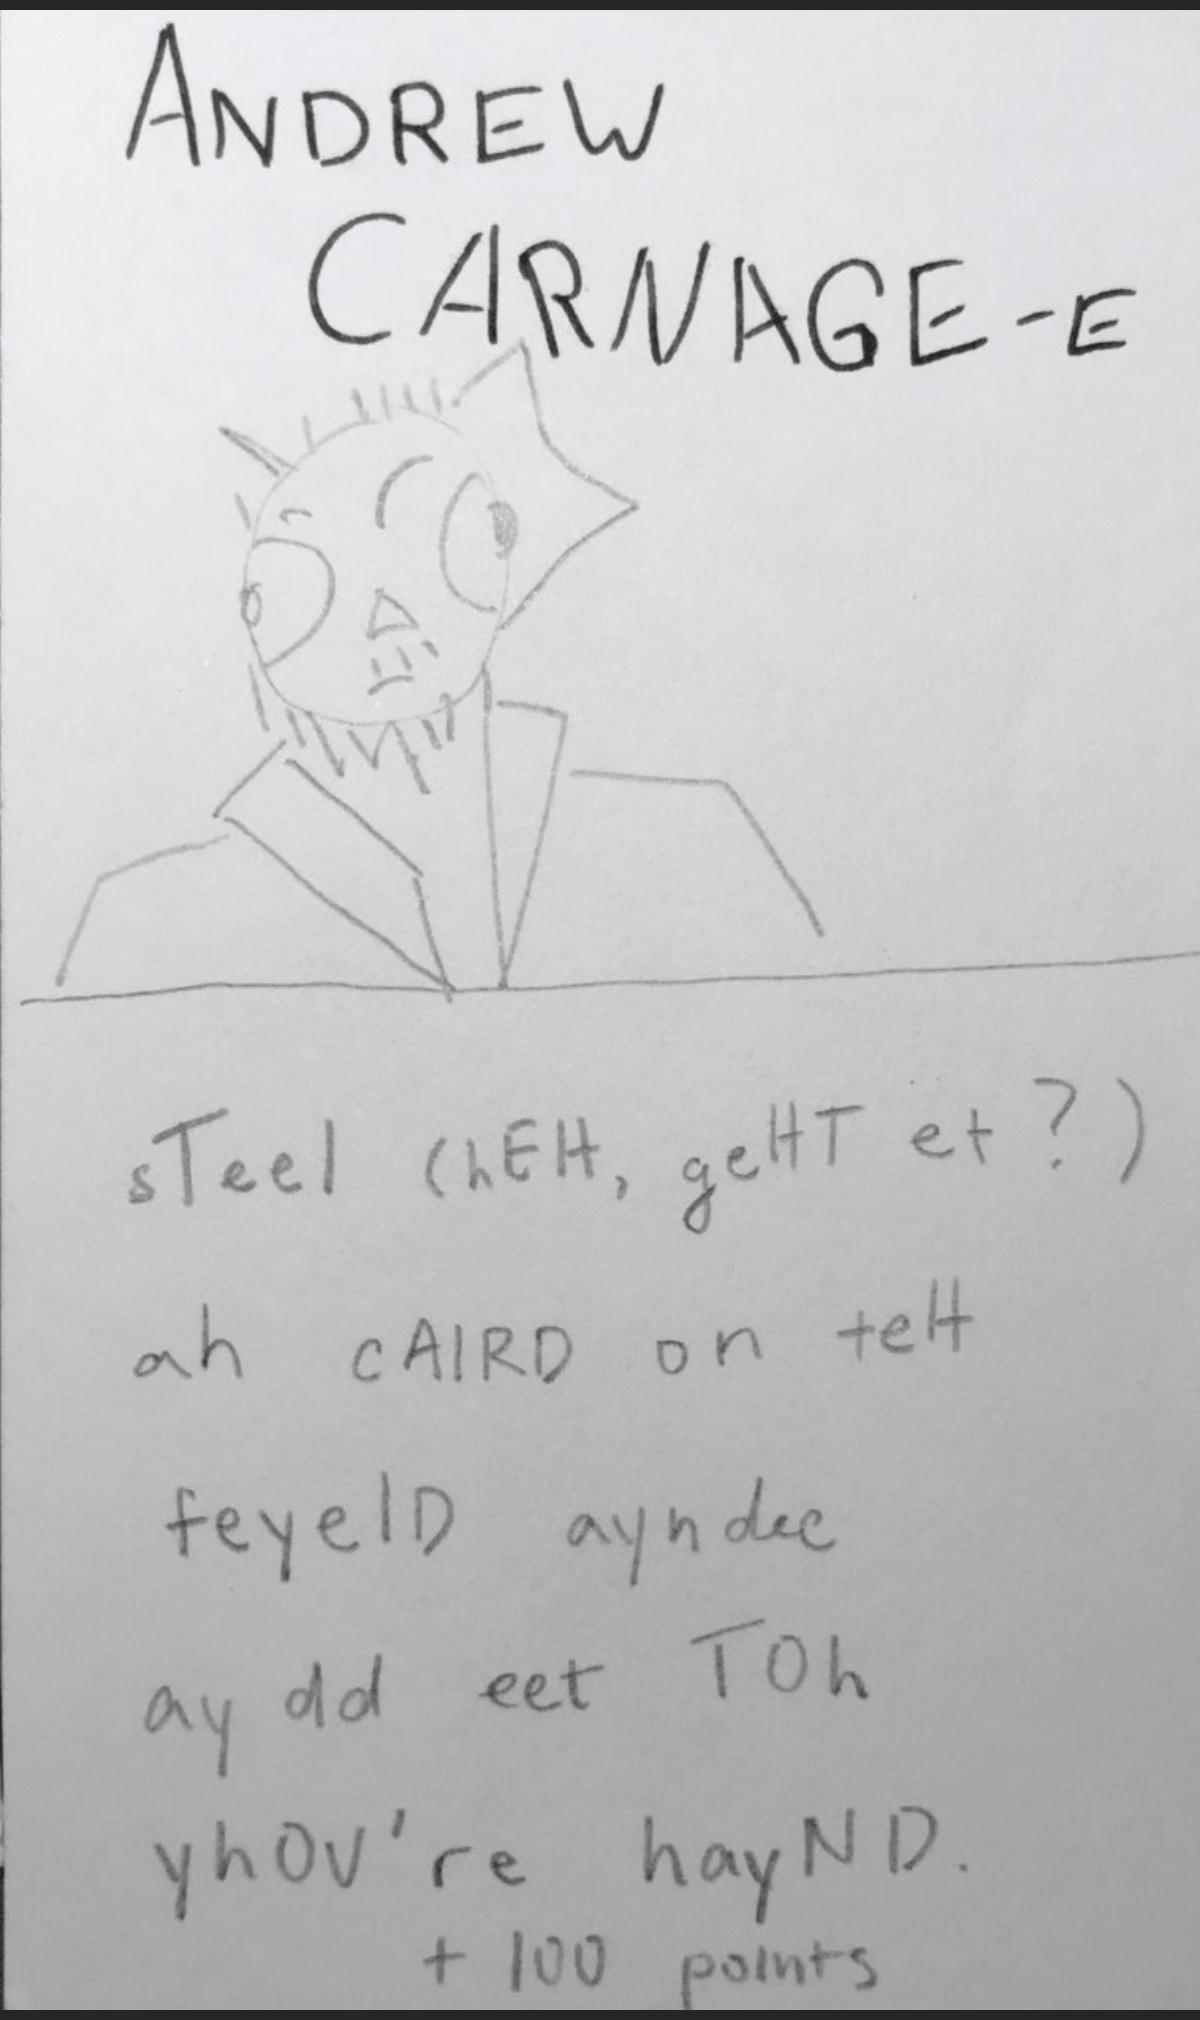 ANDREW
CARNAGE-E
sTeel (hEH, geHT et?)
ah cAIRD on teH
feyelD ayndee
ay dd eet TOh
yhOU're hayND.
+ 100 points